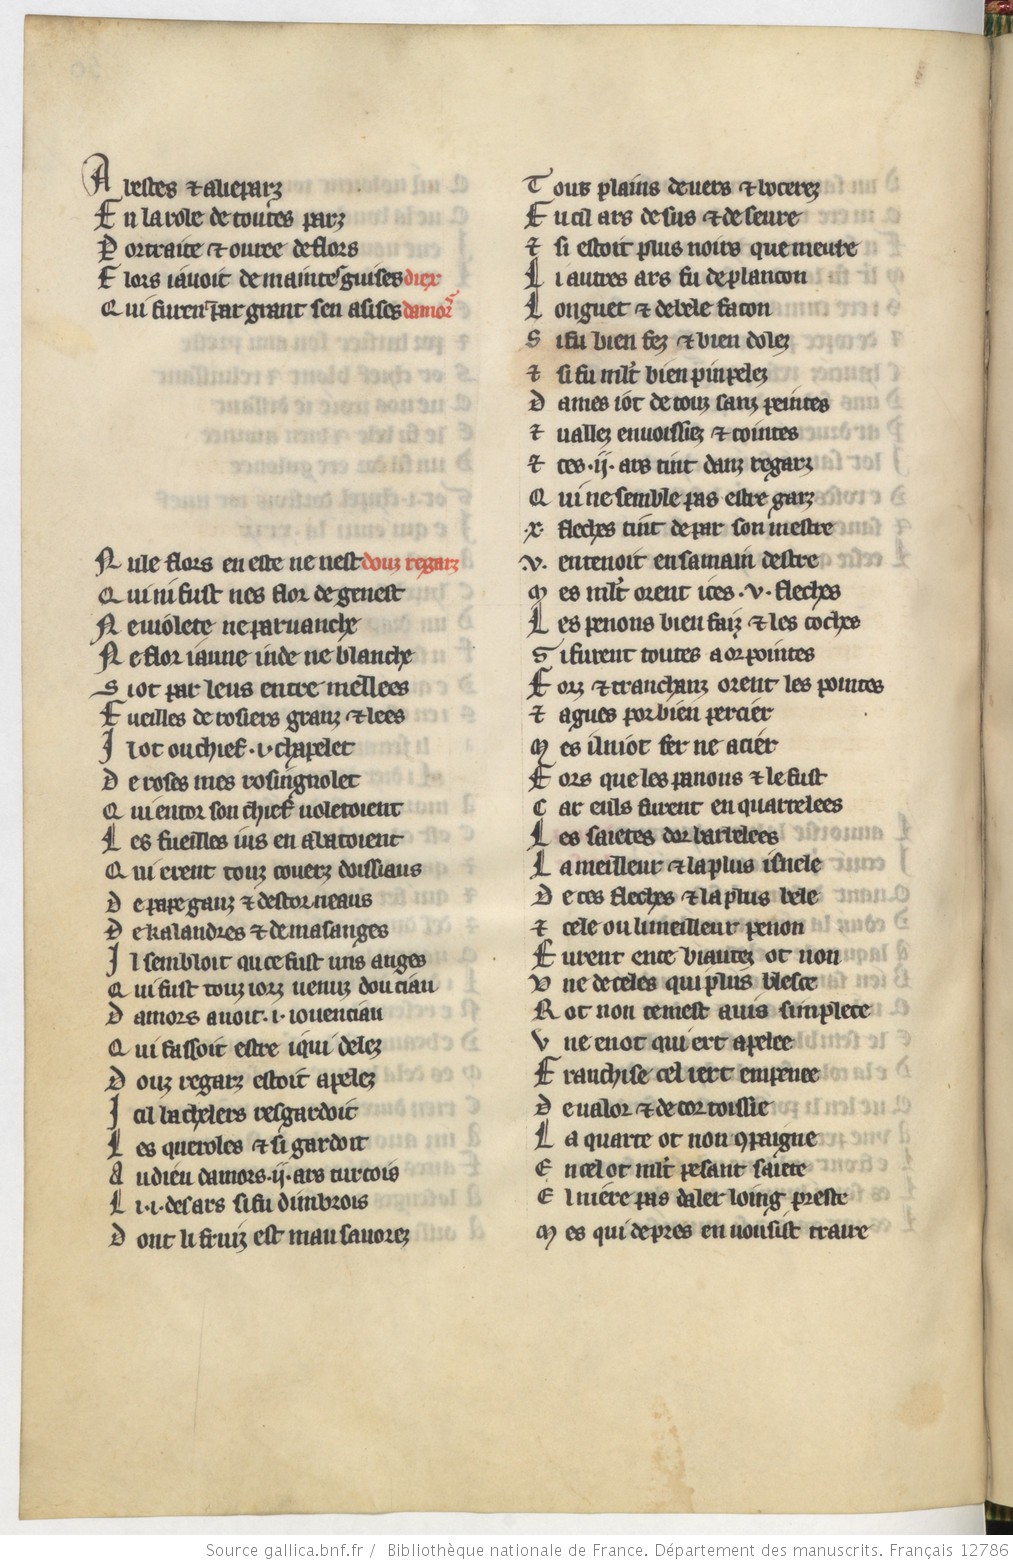 A bestes ⁊ a lieparz
E n la robe de toutes parz
P ortraite ⁊ ouuree de flors
F lors i auoit de maintes guises diex
Q ui furent par grant sen asises damors
N ule flors en este ne nest douz regarz
Q ui ni fust nes flor de genest
N e uiolete ne paruanche
N e flor iaune inde ne blanche
S i ot par leus entre mellees
F ueilles de rosiers granz ⁊ lees
I l ot ou chief .i. chapelet
D e roses mes rosingnolet
Q ui entor son chief uoletoient
L es fueilles ius en abatoient
Q ui erent touz couerz doissiaus
D e papeganz ⁊ destorneaus
D e kalandres ⁊ de masanges
I l sembloit que ce fust uns anges
Q ui fust touz iorz uenuz dou ciau
D amors auoit .i. iouenciau
Q ui fassoit estre iqui delez
D ouz regarz estoit apelez
I cil bachelers resgardoit
L es queroles ⁊ si gardoit
A u dieu damors .ii. ars turcois
L i .i. des ars si fu dunbrois
D ont li fruiz est mau sauorez
T ouz plains de uers ⁊ bocerez
F u cil ars desus ⁊ de seure
⁊ si estoit plus noirs que meure
L i autres ars fu de plancon
L onguet ⁊ de bele facon
S i fu bien fez ⁊ bien dolez
⁊ si fu mlt bien pinpelez
D ames i ot de touz sanz peintes
⁊ uallez enuoissiez ⁊ cointes
⁊ ces .ii. ars tint danz regarz
Q ui ne semble pas estre garz
.x. fleches tint de par son mestre
.v. en tenoit en sa main destre
M es mlt orent ices .v. fleches
L es penons bien faiz ⁊ les coches
S i furent toutes a or pointes
F orz ⁊ tranchanz orent les pointes
⁊ agues por bien percier
M es il ni ot fer ne acier
F ors que les panons ⁊ le fust
C ar eills furent en quarrelees
L es saietes dor barbelees
L a meilleur ⁊ la plus isnele
D e ces fleches ⁊ la plus bele
⁊ cele ou li meilleur penon
F urent ente biautez ot non
V ne de celes qui plus blesce
R ot non ce mest auis simplece
V ne en ot qui ert apelee
F ranchise cel iert enpenee
D e ualor ⁊ de cortoissie
L a quarte ot non ꝯpaignie
E n cel ot mlt pesant saiete
E l niere pas daler loing preste
M es qui de pres en uousist traire
Source gallica.bnf.fr / Bibliothèque nationale de France. Département des manuscrits. Français 12786